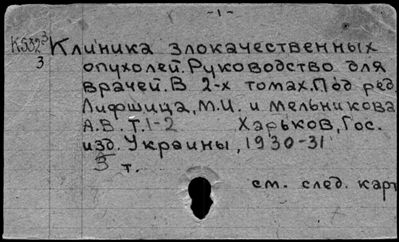 -1-
К532³ Клиника злокачественных
3 опухолей. Руководство для
врачей. В 2-х томах. Под ред.
Лифшица, М.И. и Мельникова
А.В. Т.1-2 Харьков, Гос.
изд. Украины, 1930-31
3 т.
см. след. карт